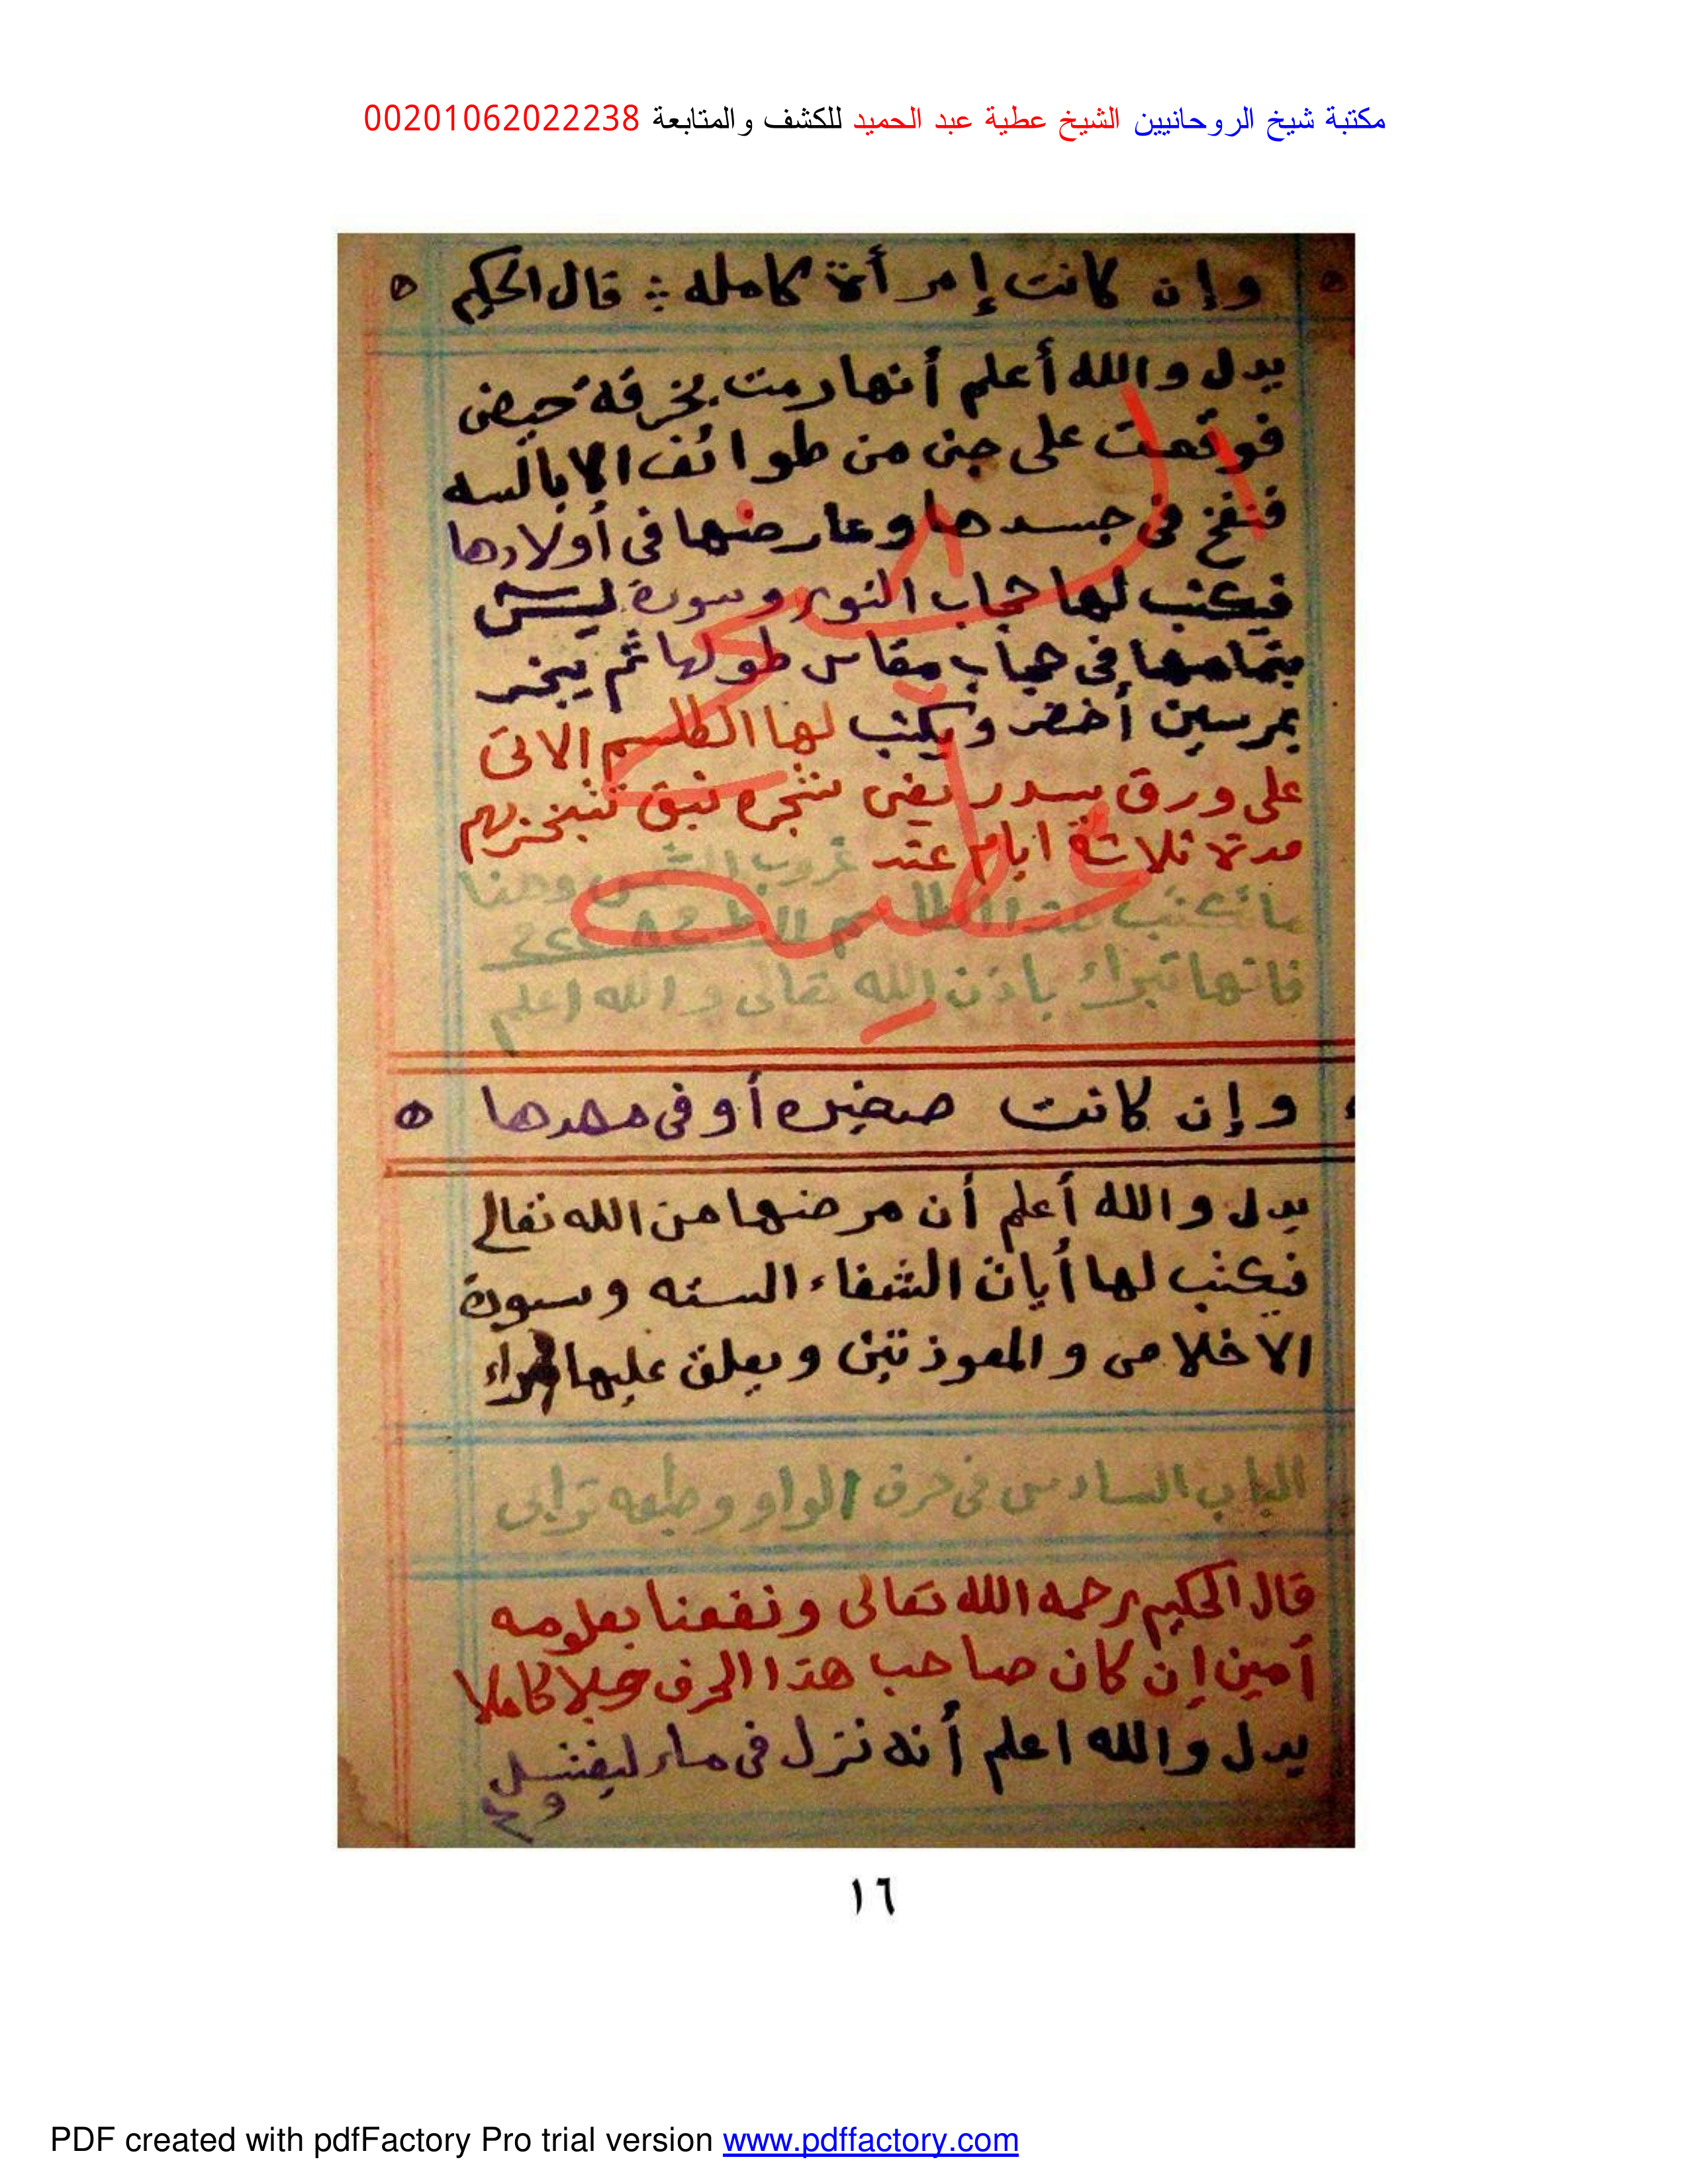 مكتبة شيخ الروحانيين الشيخ عطية عبد الحميد للكشف والمتابعة 00201062022238
وإن كانت إمرأة كامله قال الحكيم
يدل والله أعلم أنها رمت بخرقة حيض
فوقعت على جن من طوائف الابالسه
فنفخ فى جسدها وعارضها فى أولادها
فيكتب لها حجاب النور وسورة يس
بتمامها فى حجاب مقاس طولها ثم يبخر
بمرسين أخضر ويكتب لها الطلسم الاتى
على ورق سدر يعنى شجره نبق تتبخر بهم
مدة ثلاثة ايام عند غروب الشمس وهذا
ما تكتب هذا الطلسم
فانها تبراء باذن الله تعالى والله اعلم
وإن كانت صغيره أو فى مهدها
يدل والله أعلم أن مرضها من الله تعالى
فيكتب لها أيات الشفاء السته وسورة
الاخلاص والمعوذتين ويعلق عليها
الباب السادس فى حرف الواو وطبعه ترابى
قال الحكيم رحمه الله تعالى ونفعنا بعلومه
أمين إن كان صاحب هذا الحرف رجلا كاملا
يدل والله اعلم أنه نزل فى ماء ليغتسل
الشيخ عطيه
١٦
PDF created with pdfFactory Pro trial version www.pdffactory.com